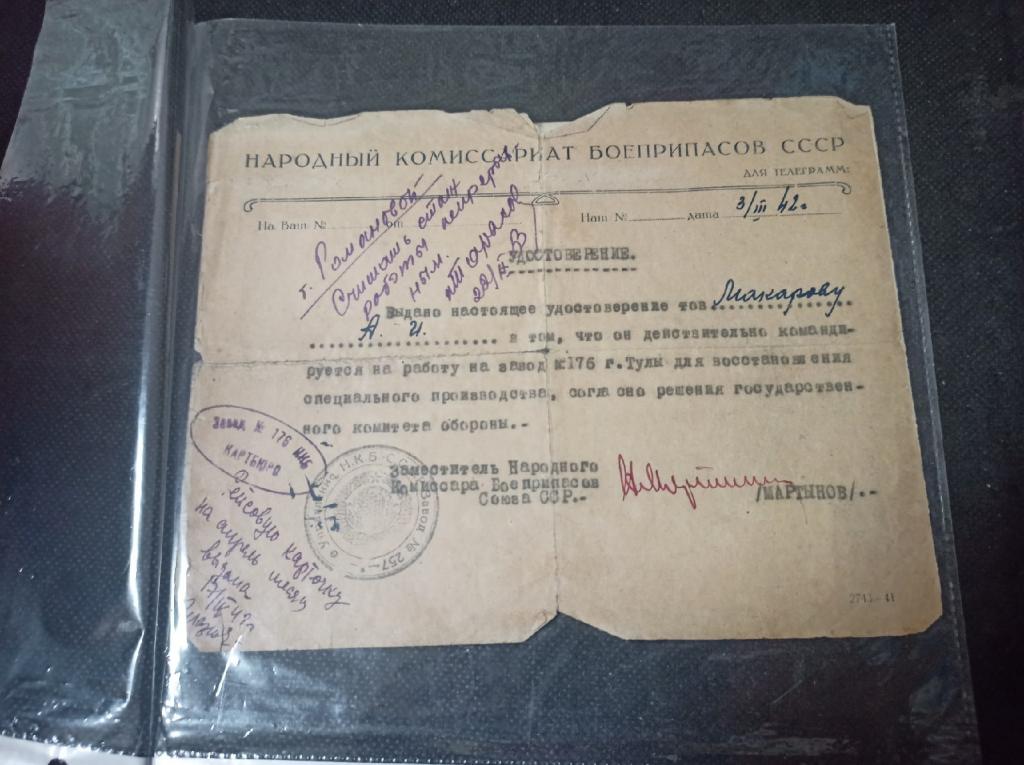 НАРОДНЫЙ КОМИССАРИАТ БОЕПРИПАСОВ СССР
ДЛЯ ТЕЛЕГРАММ:
На Ваш № от
Наш № дата 3/III 42г
т. Романовой
Считать стаж
работы непрерыв
ным.
22/IX 53
УДОСТОВЕРЕНИЕ.
Выдано настоящее удостоверение тов Макарову
А. И. в том, что он действительно команди-
руется на работу на завод №176 г.Тулы для восстановления
специального производства, согласно решения государствен-
ного комитета обороны.-
Заместитель Народного
Комиссара Боеприпасов
Союза ССР.-
/МАРТЫНОВ/.-
Завод № 176 НКБ
КАРТБЮРО
Н.К.Б.-С.С.
Завод № 257
карточку
на апрель месяц
выдана
17/IV 42г